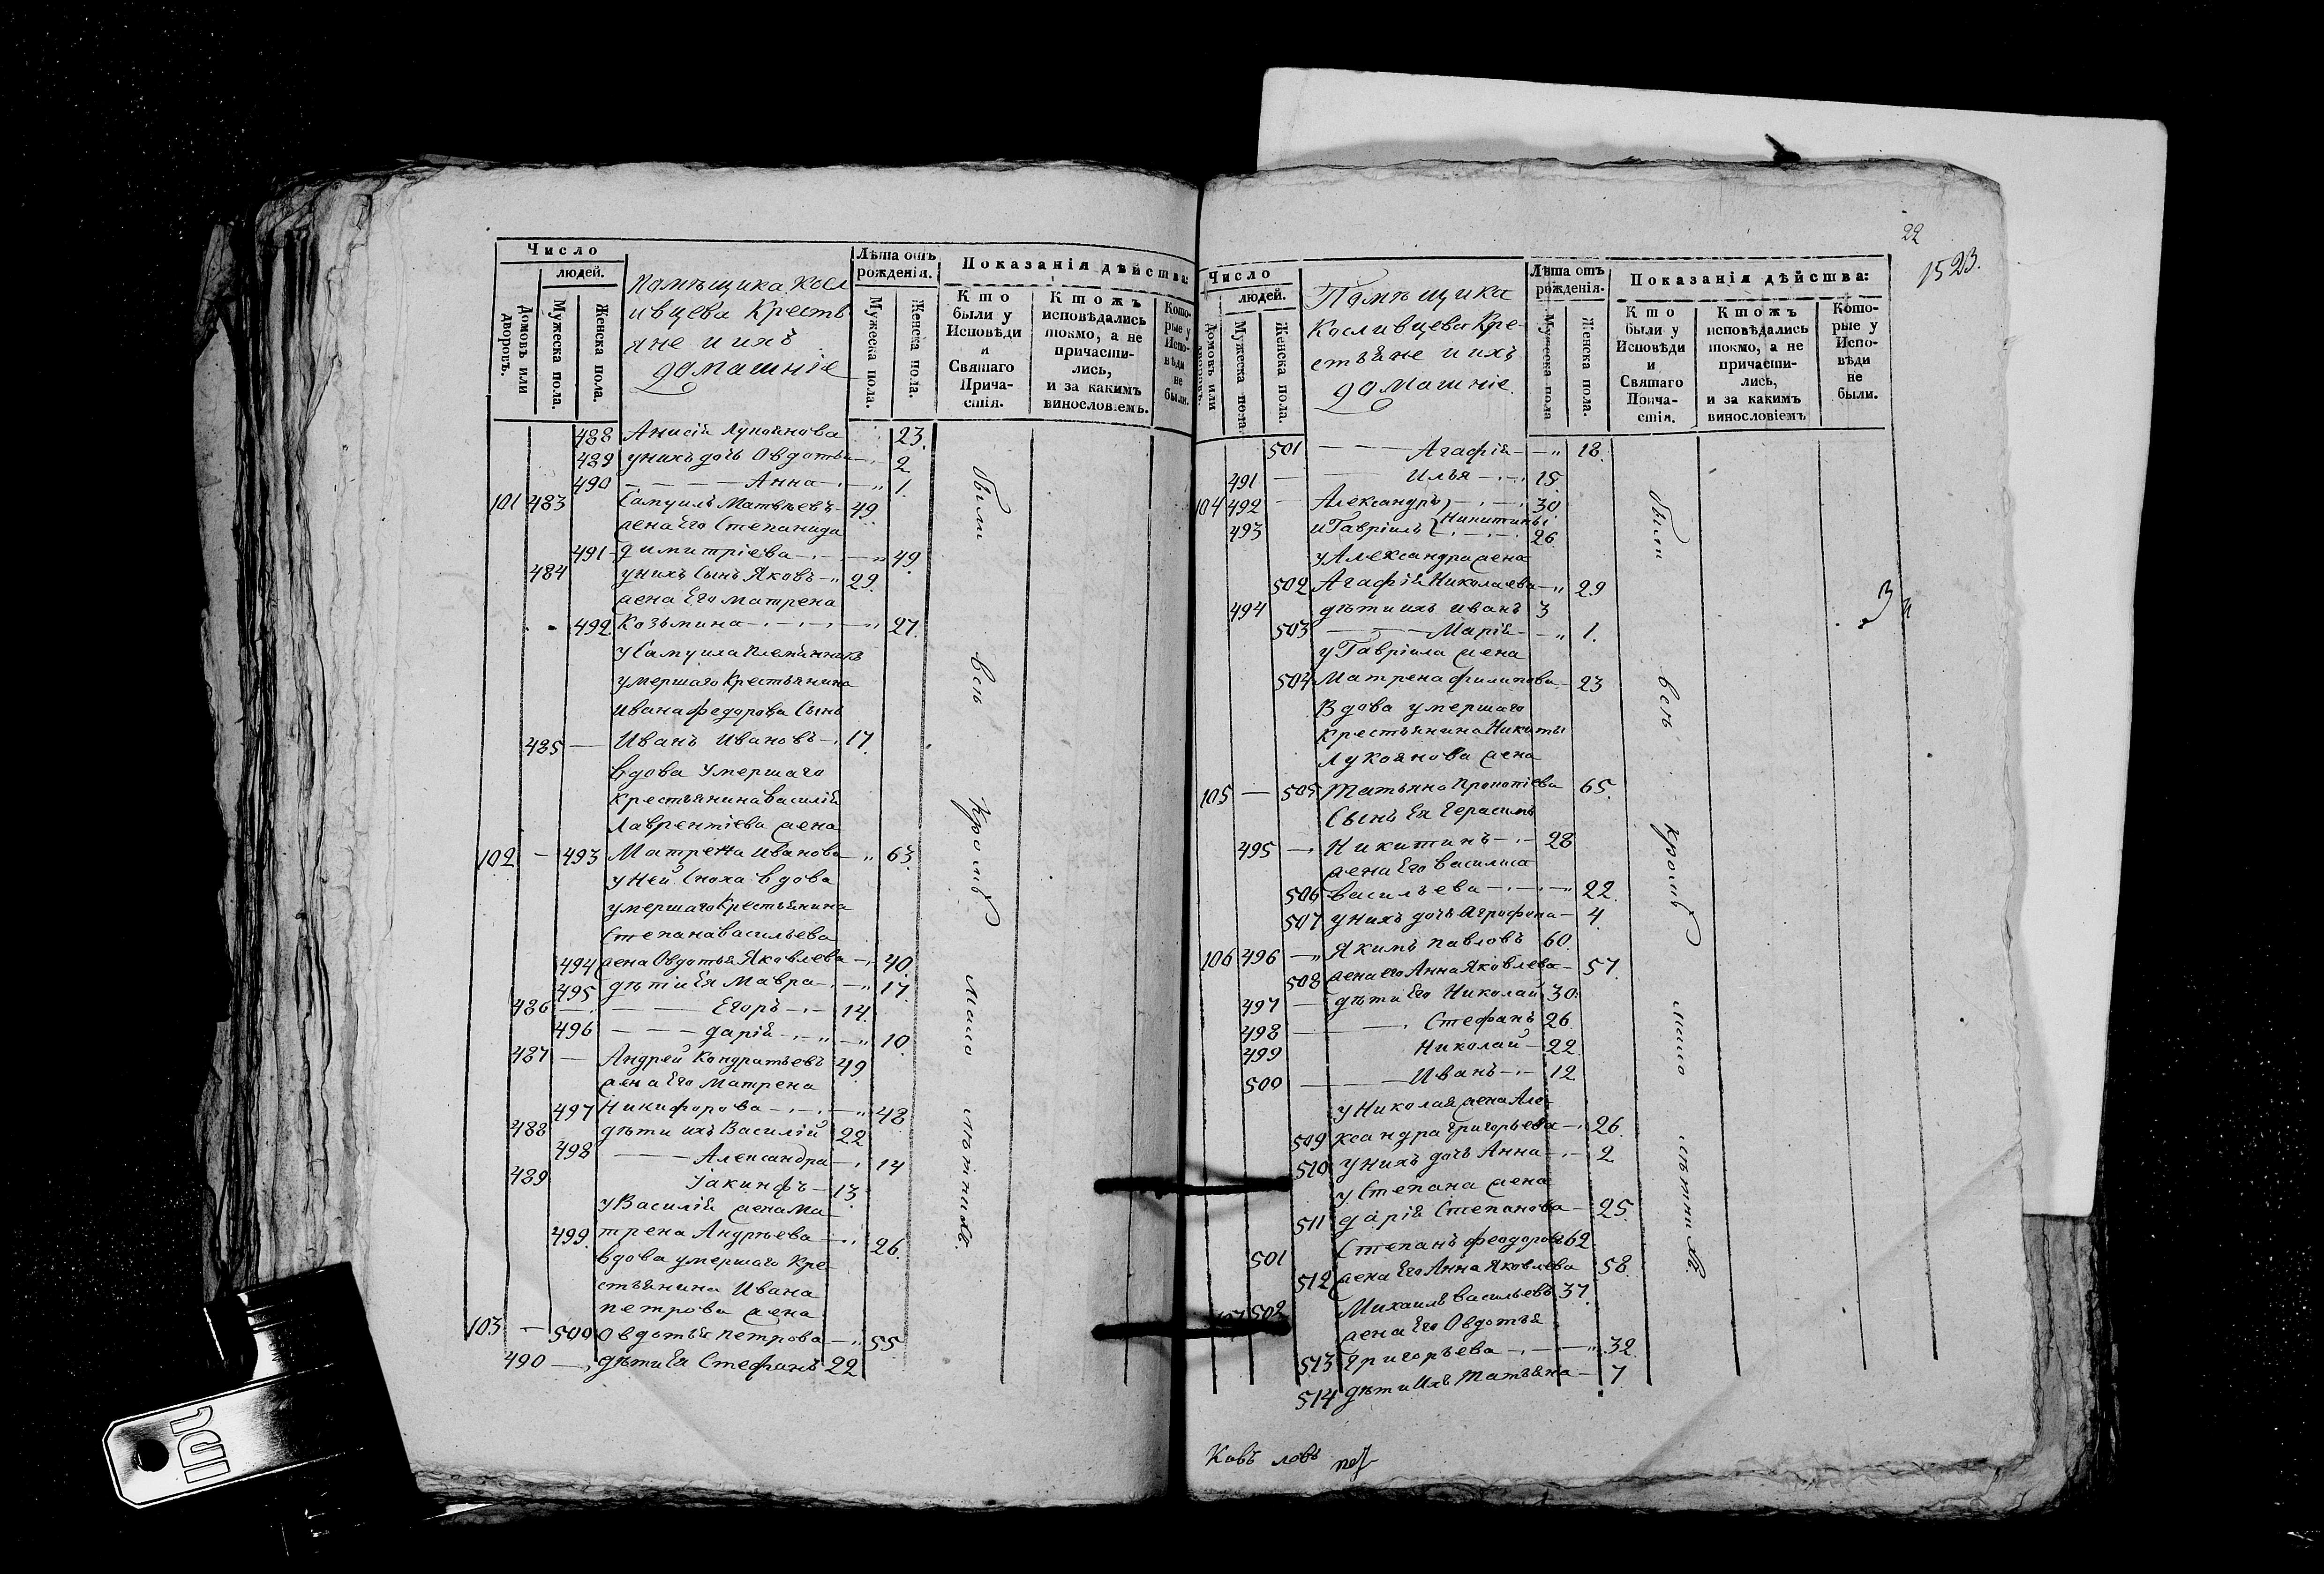 Число
людей.
Домовъ или дворовъ.
Мужеска пола.
Женска пола.
Помѣщика Косл
ивцева Кресть
яне и ихъ
домашніе
Лѣта отъ рожденія.
Мужеска пола.
Женска пола.
Показанія дѣйства:
Кто были у Исповѣди и Святаго Прича-стія.
Ктожъ исповѣдались токмо, а не причасти-лись, и за какимъ винословіемъ.
Кото-рые у Испо-вѣди не были.
488 Анисія Лукоянова 23.
489 у нихъ дочь Овдотья 2.
490 Анна 1.
101 483 Самуилъ Матвѣевъ 49
жена Его Степанида
491 Димитріева 49.
484 у нихъ Сынъ Яковъ 29.
жена Его Матрена
492 Козьмина 27.
у Самуила Племянникъ
умершаго Крестьянина
Ивана Федорова Сынъ
485 Иванъ Ивановъ 17.
вдова умершаго
крестьянина Василія
Лаврентіева жена
102 493 Матрена Иванова 63
у Ней Сноха вдова
умершаго Крестьянина
Степана Васильева
494 жена Овдотья Яковлева 40.
495 дѣти Ея Мавра 17
486 Егоръ 14
496 Дарія 10
487 Андрей Кондратьевъ 49
жена Его Матрена
497 Никифорова 48
488 дѣти ихъ Василій 22
498 Александра 14
489 Іакинфъ 13
у Василія жена Ма
499. трена Андрѣева 26
вдова умершаго Кре
стьянина Ивана
петрова жена
103 500 Овдотья Петрова 55
490 дѣти Ея Стефанъ 22
были всѣ Кромѣ мало лѣтнихъ.
22
1523.
Число
людей.
Домовъ или
Мужеска пола
Женска пола.
Помѣщика
Косливцева Кре-
стьяне и ихъ
домашніе.
Лѣта отъ рожденія.
Мужеска пола
Женска пола.
Показанія дѣйства:
Кто были у Исповѣди и Святаго Прича-стія.
Ктожъ исповѣдались токмо, а не причасти-лись, и за какимъ винословіемъ
Кото-рые у Испо-вѣди не были.
501 Агафія 18.
491 Илья 15.
104 492 Александръ 30
493 и Гавріилъ Никитины 26
у Александра жена
502 Агафія Николаева 29
494 дѣти ихъ Иванъ 3
503 Марія 1.
у Гавріила жена
504 Матрена Филипова 23
Вдова умершаго
крестьянина Никиты
Лукоянова жена
105 505 Татьяна Прокопіева 65.
Сынъ Ея Герасимъ
495 Никитинъ 28
жена Его Василиса
506 Васильева 22.
507 у нихъ дочь Агрофена 4.
106 496 Якимъ Павловъ 60.
508 жена его Анна Яковлева 57.
497 дѣти Его Николай 30
498 Стефанъ 26
499 Николай 22
500 Иванъ 12
у Николая жена Але-
509 ксандра Григорьева 26
510 у нихъ дочь Анна 2
у Степана жена
511 Дарія Степанова 25.
501 Степанъ Феодоровъ 62
512 жена Его Анна Яковлева 58.
502 Михаилъ Васильевъ 37.
жена Его Овдотья
513 Григорьева 32
514 дѣти Ихъ Татьяна 7
были всѣ кромѣ мало лѣтнихъ.